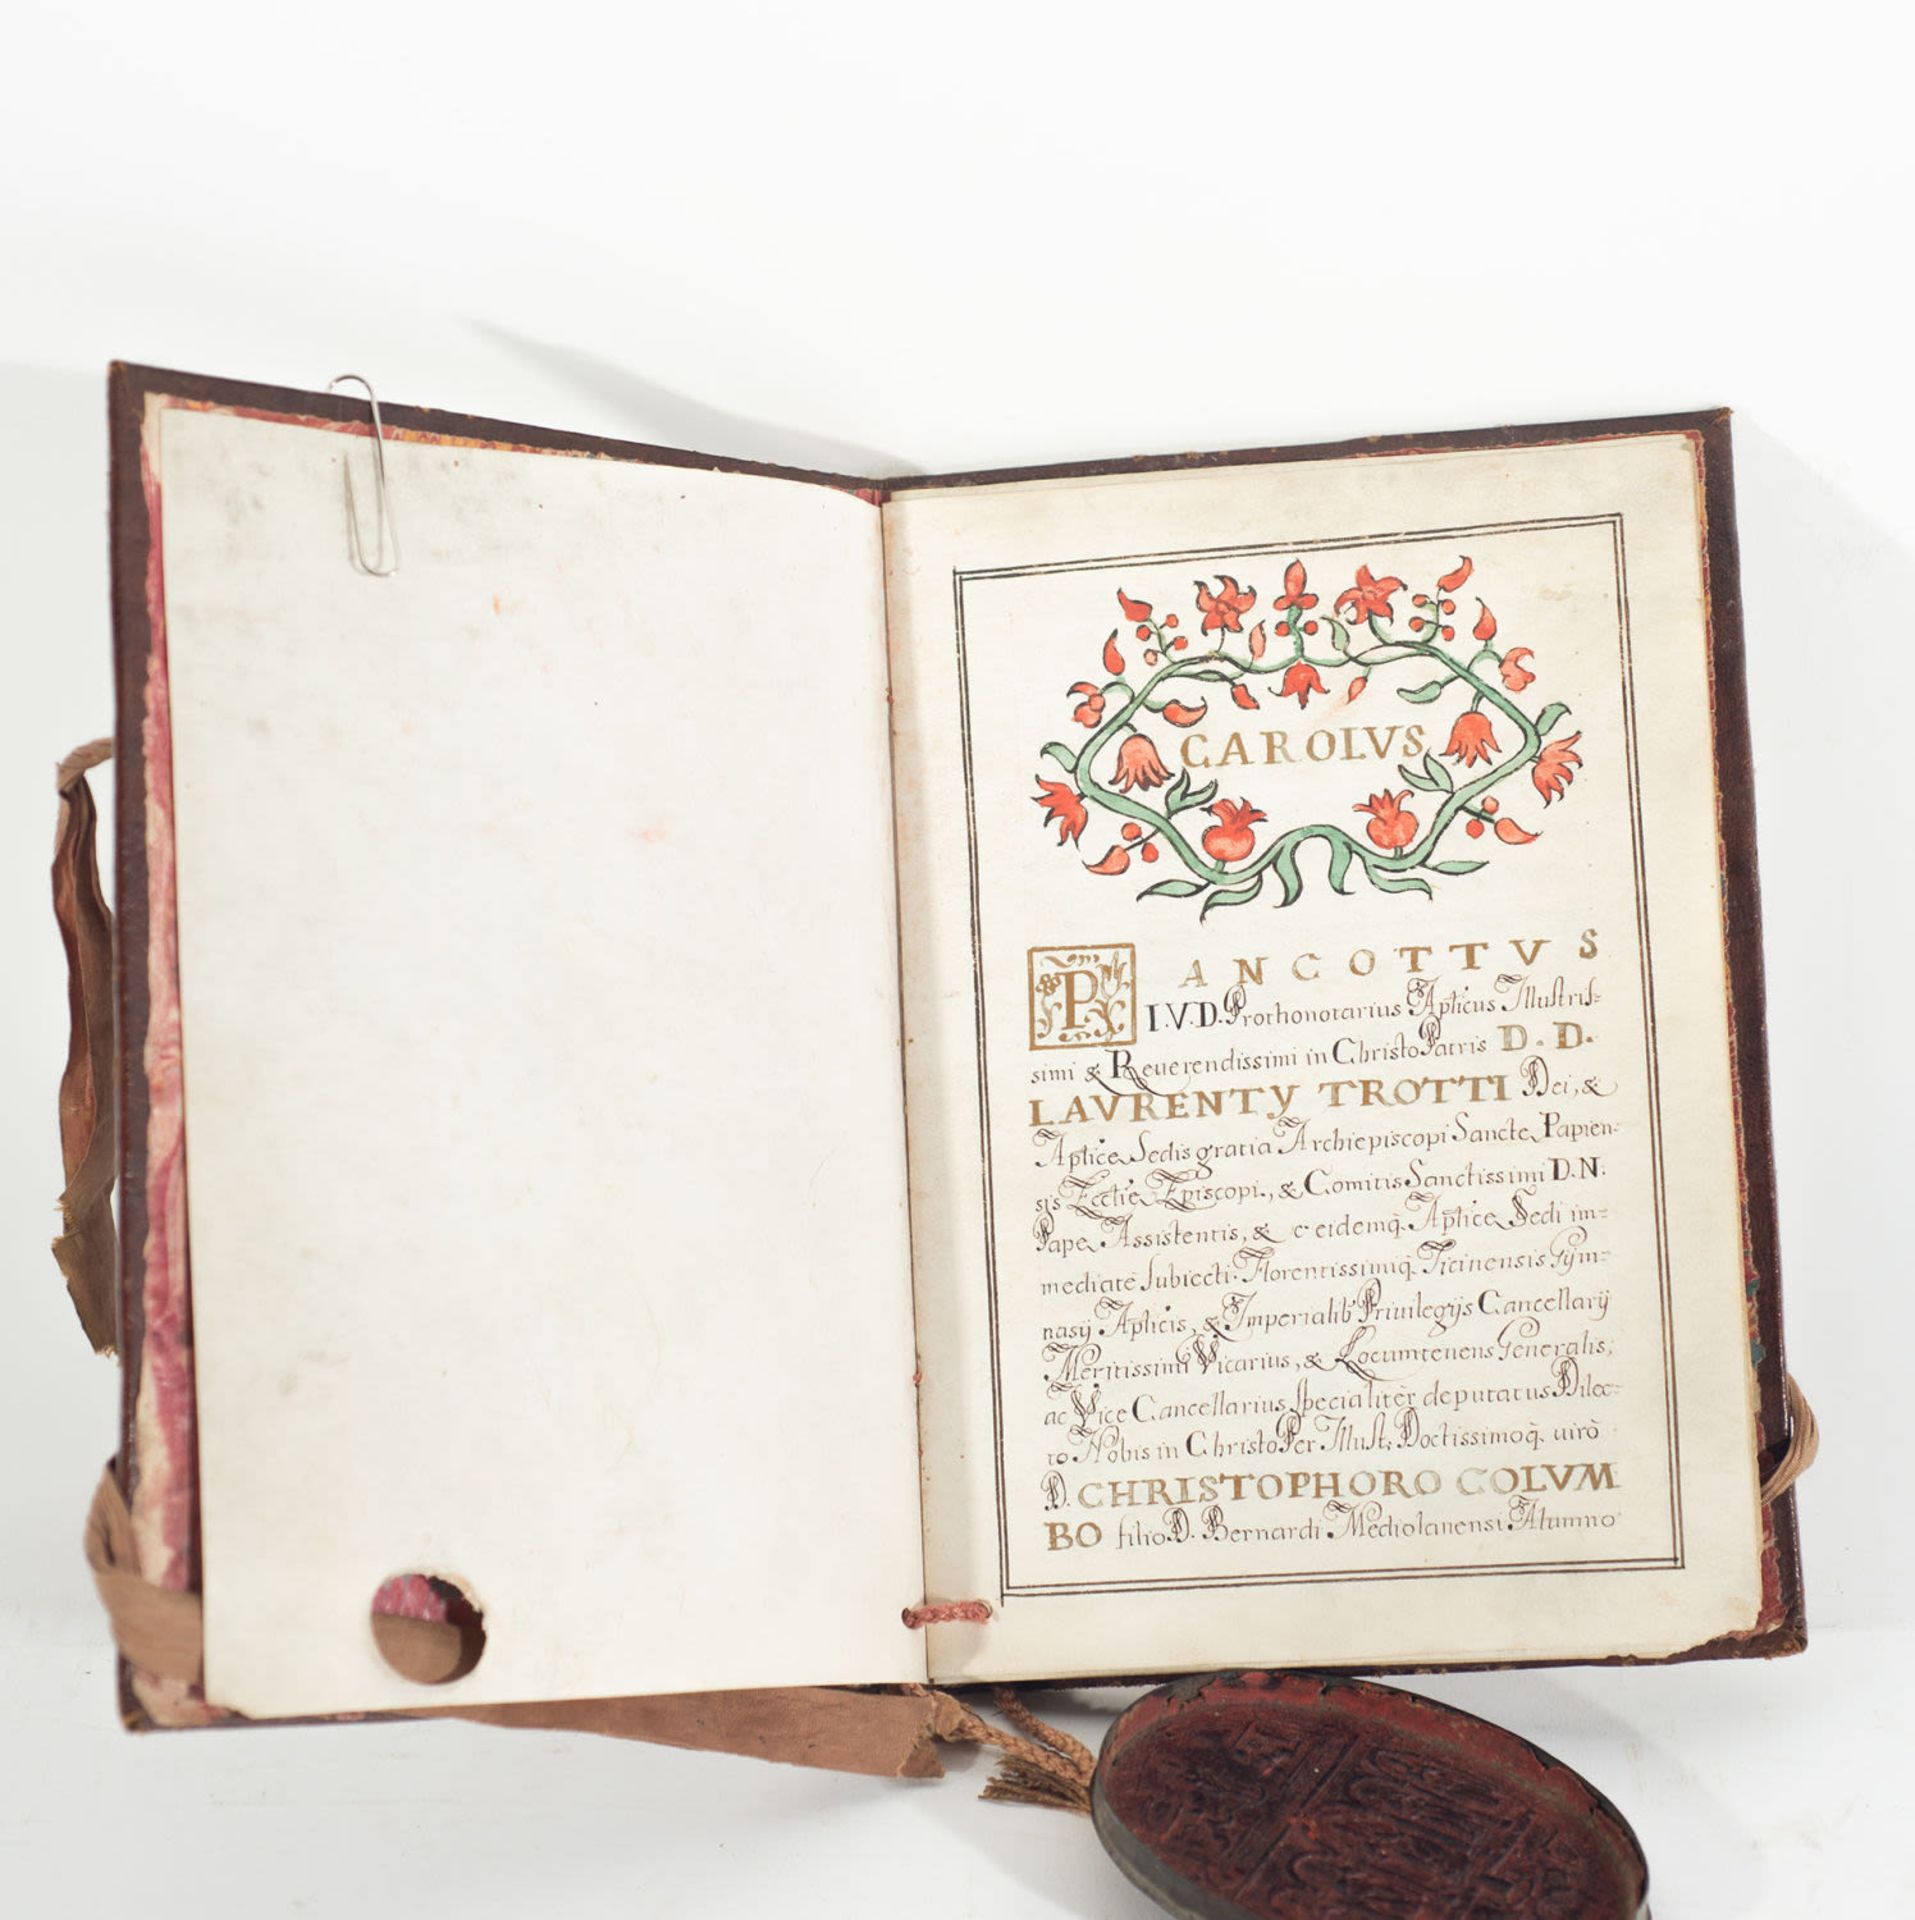 CAROLVS
PANCOTTVS
I.V.D. Prothonotarius Aplicus Illustris=
simi & Reuerendissimi in Christo Patris D. D.
LAVRENTY TROTTI Dei, &
Aplice Sedis gratia Archiepiscopi Sancte Papien-
sis Ecclie Episcopi, & Comitis Sanctissimi D.N.
Pape Assistentis, & eidemq̃. Aplice Sedi im=
mediatè subiecti. Florentissimiq̃. Ticinensis Gÿm=
nasÿ Aplicis, & Imperialib Priuilegÿs Cancellarÿ
Meritissimi Vicarius, & Locumtenens Generalis;
ac Vice Cancellarius specialitèr deputatus Dilec=
to Nobis in Christo Per Illust: Doctissimoq̃. uirò
D. CHRISTOPHORO COLVM
BO filio D. Bernardi Mediolanensi Alumno